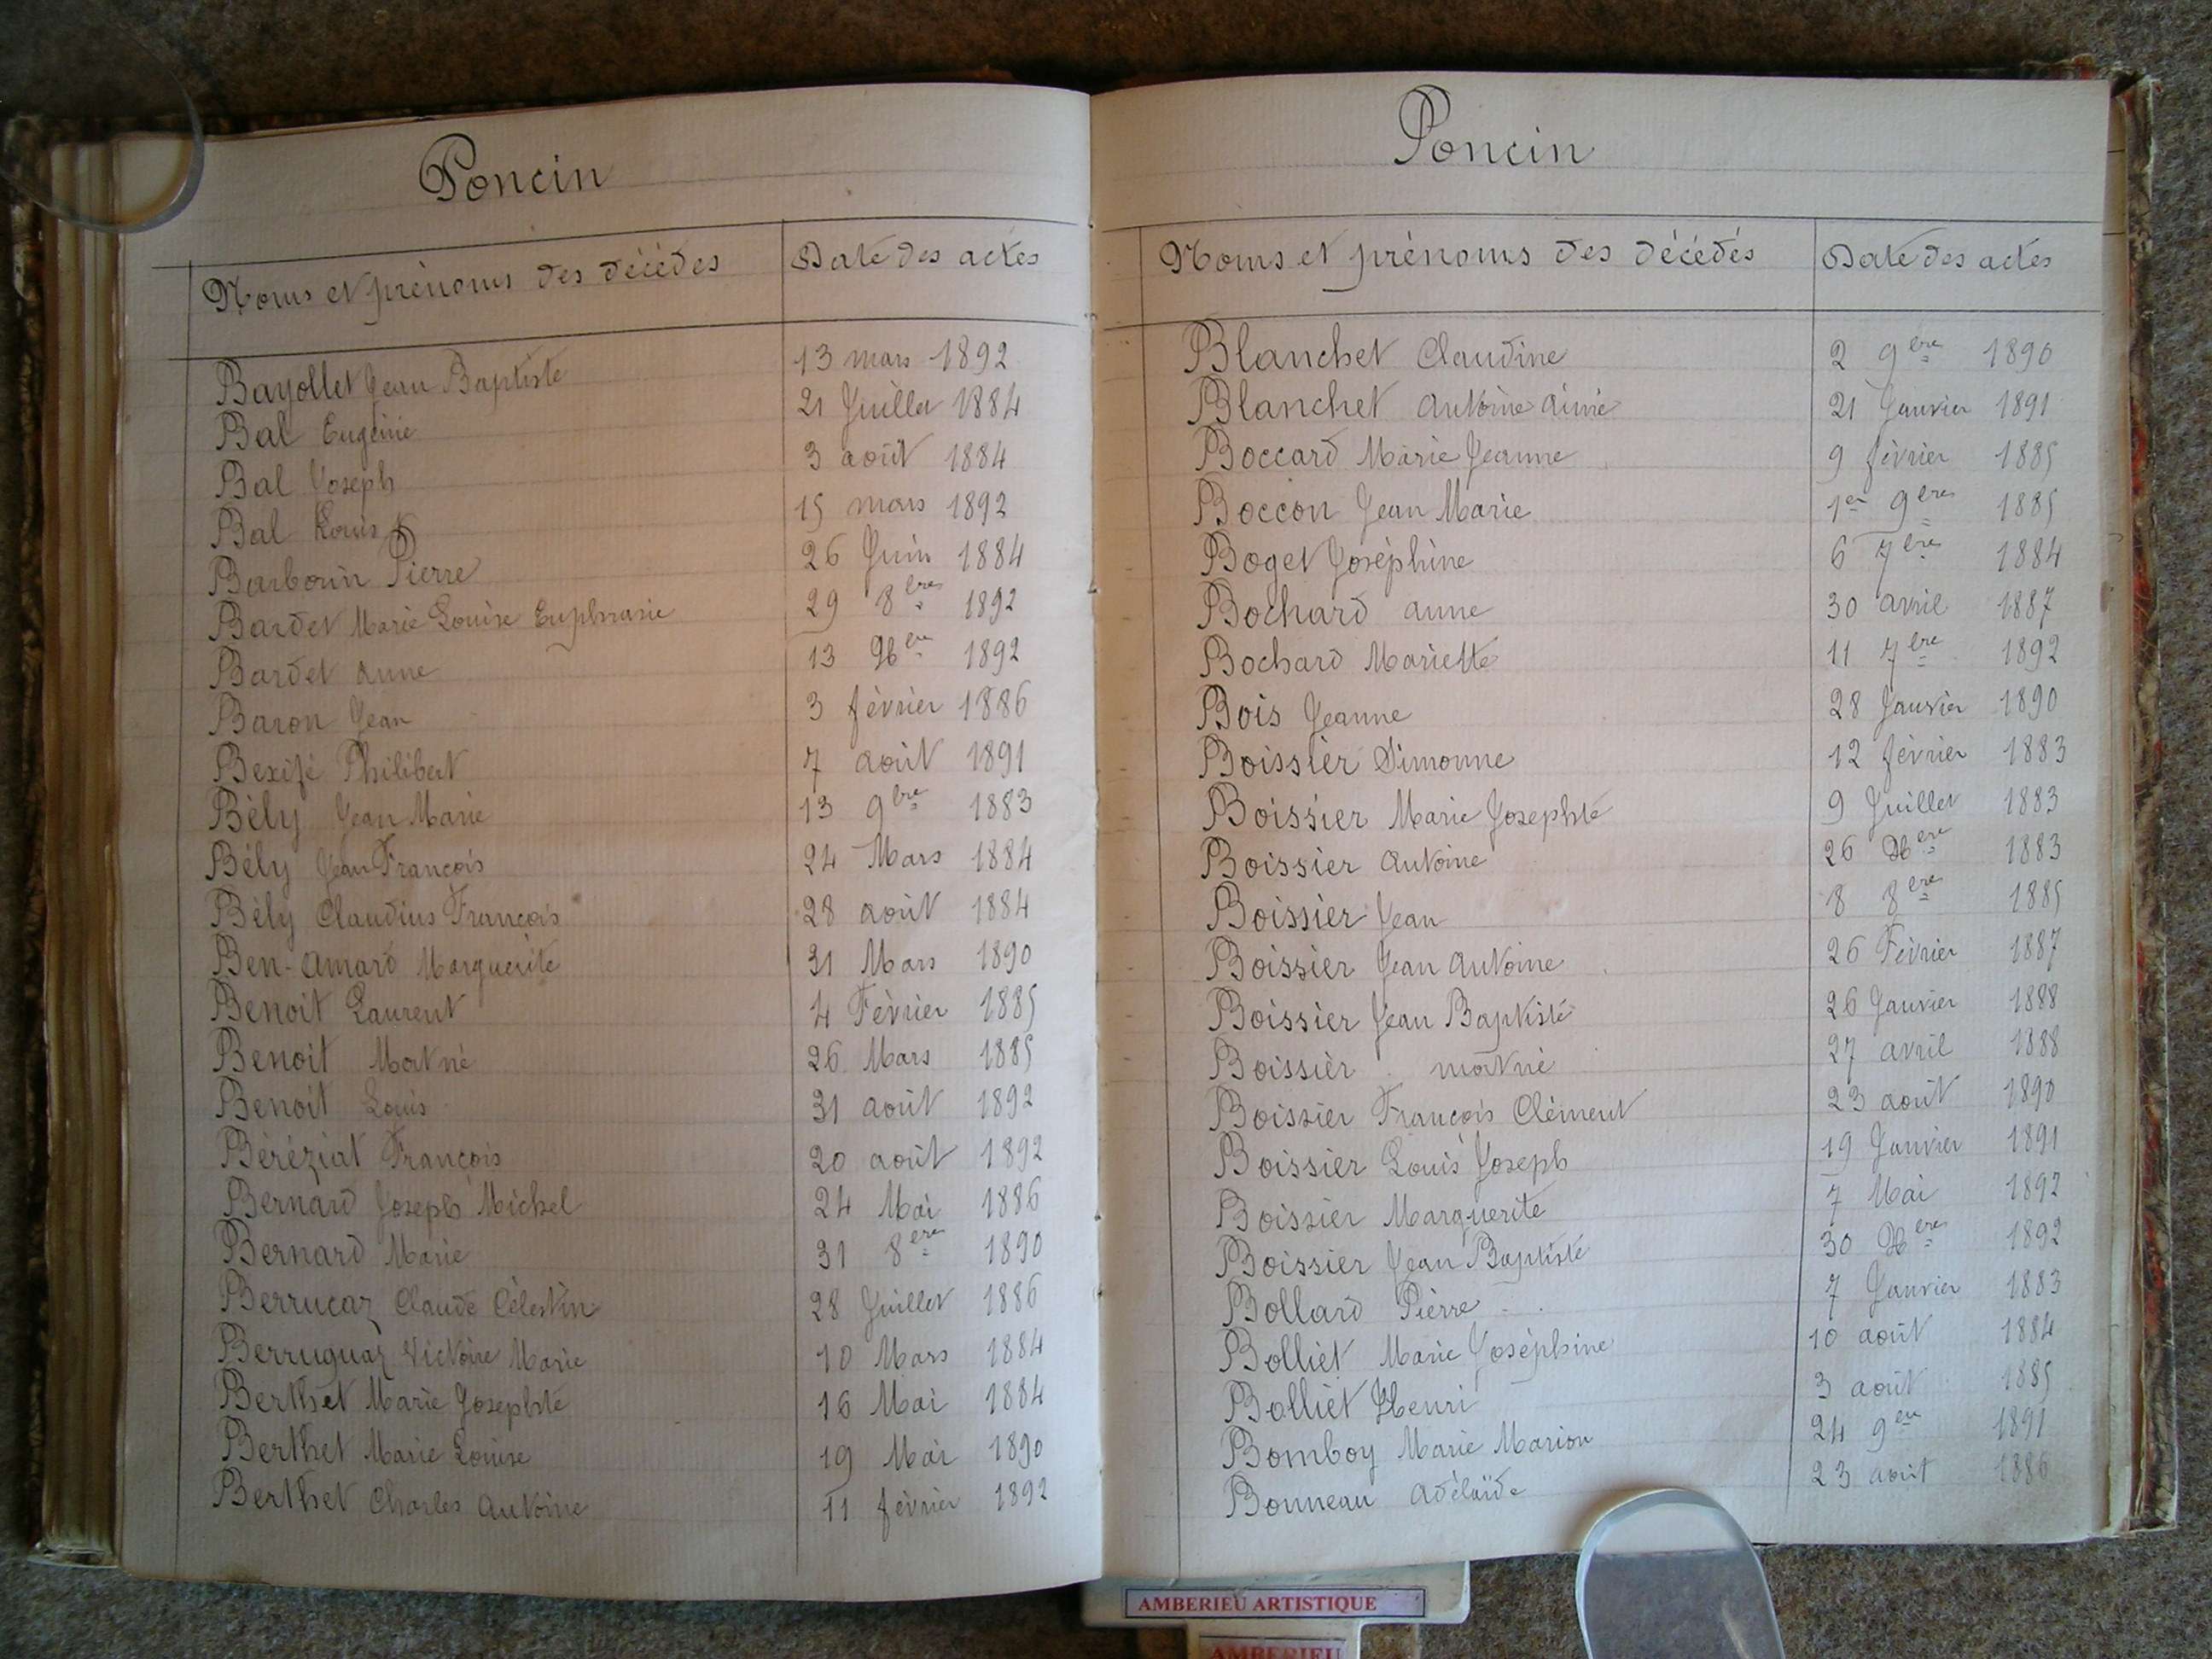 Poncin
Noms et prénoms des décédés Date des actes
Bayollet Jean Baptiste 13 mars 1892
Bal Eugénie 21 Juillet 1884
Bal Joseph 3 août 1884
Bal Louis 15 mars 1892
Barbouin Pierre 26 Juin 1884
Bardet Marie Louise Euphrasie 29 8bres 1892
Bardet Anne 13 Xbere 1892
Baron Jean 3 février 1886
Philibert 7 août 1891
Bély Jean Marie 13 9bre 1883
Bély Jean François 24 Mars 1884
Bély Claudius François 28 août 1884
Ben-Amard Marguerite 31 Mars 1890
Benoit Laurent 4 Février 1885
Benoit Mort né 26 Mars 1885
Benoit Louis 31 août 1892
Béréziat François 20 août 1892
Bernard Joseph Michel 24 Mai 1886
Bernard Marie 31 8ere 1890
Berrucaz Claude Célestin 28 Juillet 1886
Berruquaz Victoire Marie 10 Mars 1884
Berthet Marie Josephte 16 Mai 1884
Berthet Marie Louise 19 Mai 1890
Berthet Charles Antoine 11 février 1892
Poncin
Noms et prénoms des décédés Date des actes
Blanchet Claudine 2 9ere 1890
Blanchet Antoine Aimé 21 Janvier 1891
Boccard Marie Jeanne 9 février 1885
Boccon Jean Marie 1er 9bres 1885
Boget Joséphine 6 7bres 1884
Bochard Anne 30 avril 1887
Bochard Mariette 11 7bre 1892
Bois Jeanne 28 Janvier 1890
Boissier Simonne 12 février 1883
Boissier Marie Josephte 9 Juillet 1883
Boissier Antoine 26 Xbere 1883
Boissier Jean 8 8ere 1885
Boissier Jean Antoine 26 Février 1887
Boissier Jean Baptiste 26 Janvier 1888
Boissier mort né 27 avril 1888
Boissier François Clément 23 août 1890
Boissier Louis Joseph 19 Janvier 1891
Boissier Marguerite 7 Mai 1892
Boissier Jean Baptiste 30 Xbere 1892
Bollard Pierre 7 Janvier 1883
Bolliet Marie Joséphine 10 août 1884
Bolliet Henri 3 août 1885
Bomboy Marie Marion 24 9ere 1891
Bonneau Adélaïde 23 août 1886
AMBERIEU ARTISTIQUE
AMBERIEU